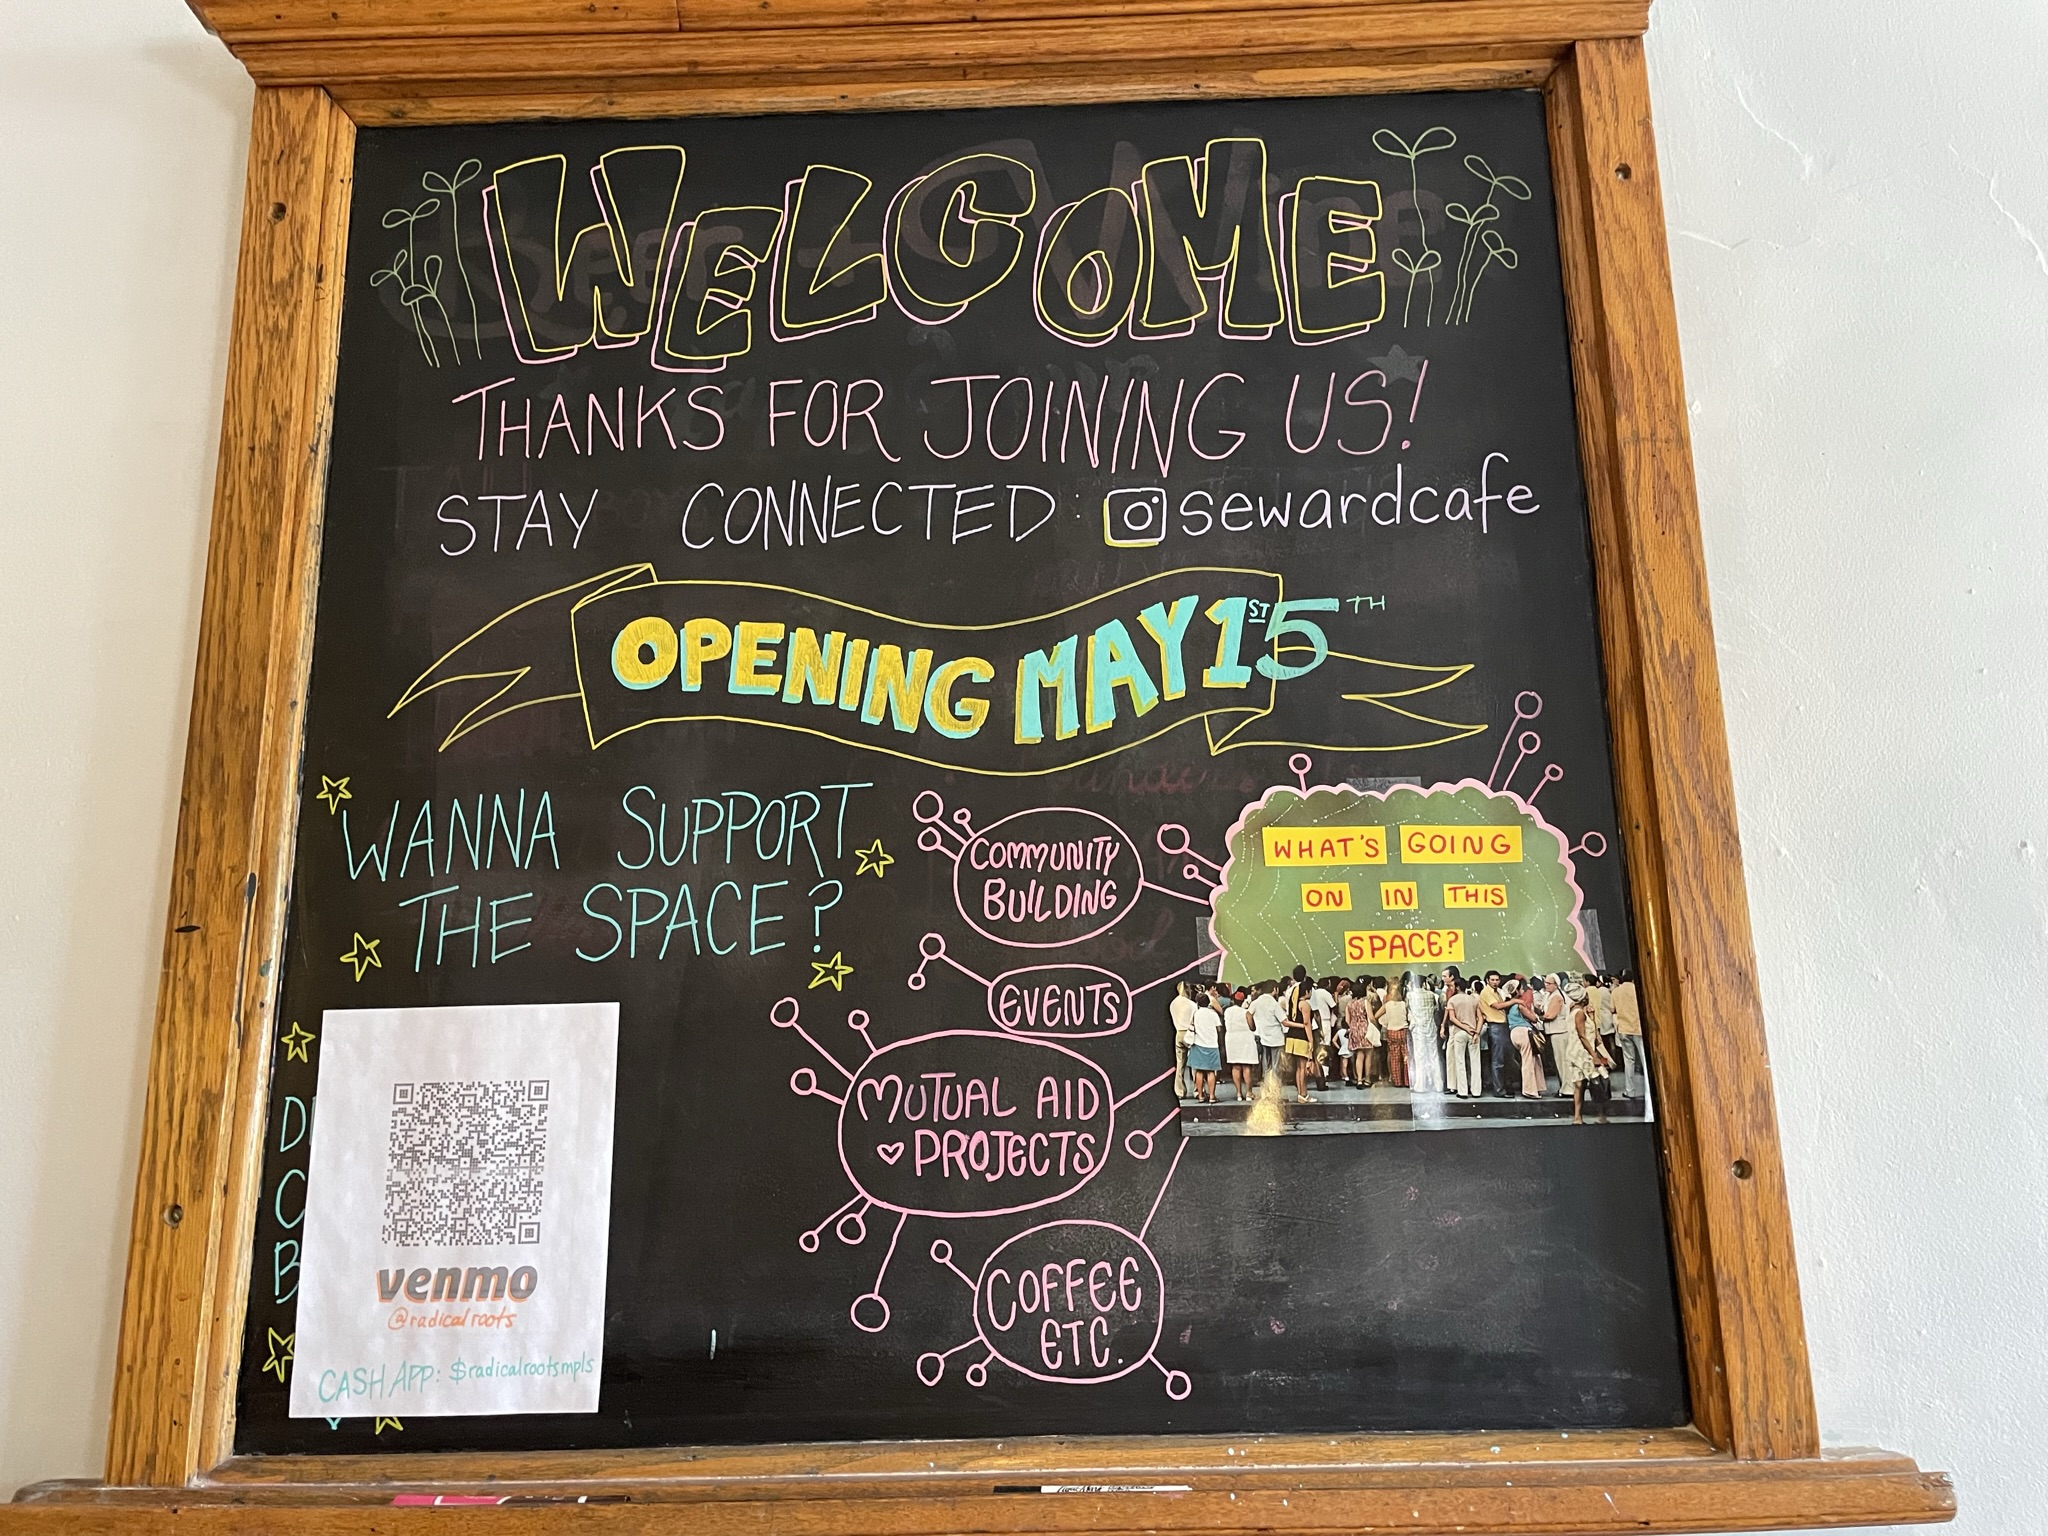 WELCOME
THANKS FOR JOINING US!
STAY CONNECTED: sewardcafe
OPENING MAY 1ST5TH
WANNA SUPPORT
THE SPACE?
D
C
B
venmo
@radicalroots
CASH APP: $radicalrootsmpls
COMMUNITY
BUILDING
EVENTS
MUTUAL AID
♡ PROJECTS
COFFEE
ETC.
WHAT'S GOING
ON IN THIS
SPACE?